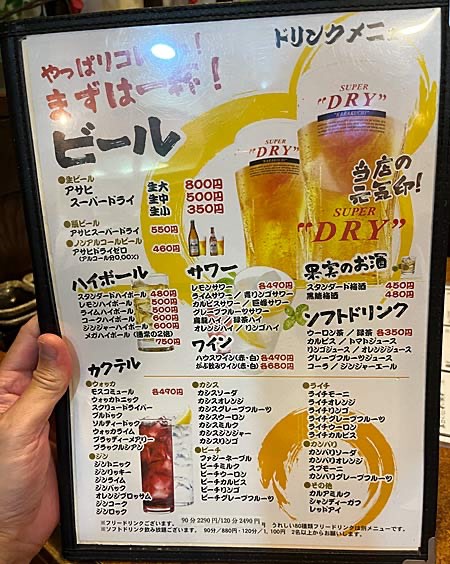 ドリンクメニュ
やっぱりコレ！
まずは一杯！
ビール
SUPER
"DRY"
SUPER
"DRY"
SUPER
"DRY"
当店の
元気印！
●生ビール
アサヒ
スーパードライ
生大 800円
生中 500円
生小 350円
●瓶ビール
アサヒスーパードライ 550円
●ノンアルコールビール
アサヒドライゼロ 460円
(アルコール分0.00%)
ハイボール
スタンダードハイボール 480円
レモンハイボール 500円
ライムハイボール 500円
コークハイボール 600円
ジンジャーハイボール 600円
メガハイボール（通常の2倍） 750円
サワー
レモンサワー 各490円
ライムサワー / 青リンゴサワー
カルピスサワー / 巨峰サワー
グレープフルーツサワー
烏龍ハイ / 緑茶ハイ
オレンジハイ / リンゴハイ
ワイン
ハウスワイン(赤・白) 各490円
がぶ飲みワイン(赤・白) 各680円
果実のお酒
スタンダード梅酒 450円
黒糖梅酒 480円
ソフトドリンク
ウーロン茶 / 緑茶 各350円
カルピス / トマトジュース
リンゴジュース / オレンジジュース
グレープフルーツジュース
コーラ / ジンジャーエール
カクテル
●ウォッカ
モスコミュール 各490円
ウォッカトニック
スクリュードライバー
ブルドック
ソルティドック
ウォッカライム
ブラッディーメアリー
ブラックルシアン
●ジン
ジントニック
ジンリッキー
ジンライム
ジンバック
オレンジブロッサム
ジンコーク
ジンロック
●カシス
カシスソーダ
カシスオレンジ
カシスグレープフルーツ
カシスウーロン
カシスミルク
カシスジンジャー
カシスリンゴ
●ピーチ
ファジーネーブル
ピーチミルク
ピーチウーロン
ピーチカルピス
ピーチリンゴ
ピーチグレープフルーツ
●ライチ
ライチモーニ
ライチオレンジ
ライチリンゴ
ライチグレープフルーツ
ライチウーロン
ライチカルピス
●カンパリ
カンパリソーダ
カンパリオレンジ
スプモーニ
カンパリグレープフルーツ
●その他
カルアミルク
シャンディーガフ
レッドアイ
※フリードリンクございます。 90分 2290円/120分 2490円 うれしい80種類フリードリンクは別メニューです。
※ソフトドリンク飲み放題ございます。 90分/880円・120分/1,100円 2名以上からお願いします。